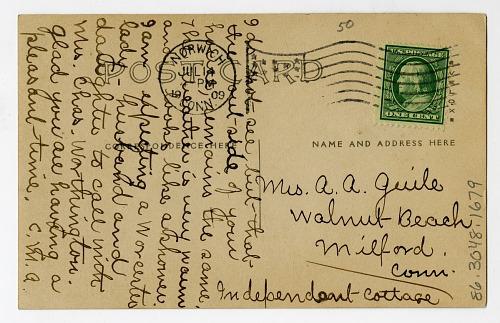 50
POST CARD
NORWICH
JUL 14
PM
1909
CONN
U.S. POSTAGE
ONE CENT
CORRESPONDENCE HERE
NAME AND ADDRESS HERE
I do not see but that
the outside of your
house remains the same.
The weather is very warm
and looks like a shower.
I am expecting a Worcester
lady - husband and
daughter to call with
Mrs. Chas. Worthington.
Glad you are having a
pleasant time.
C. M. A.
Mrs. A. A. Guile
Walnut Beach
Milford.
Conn.
Independent Cottage
86.3048.1679